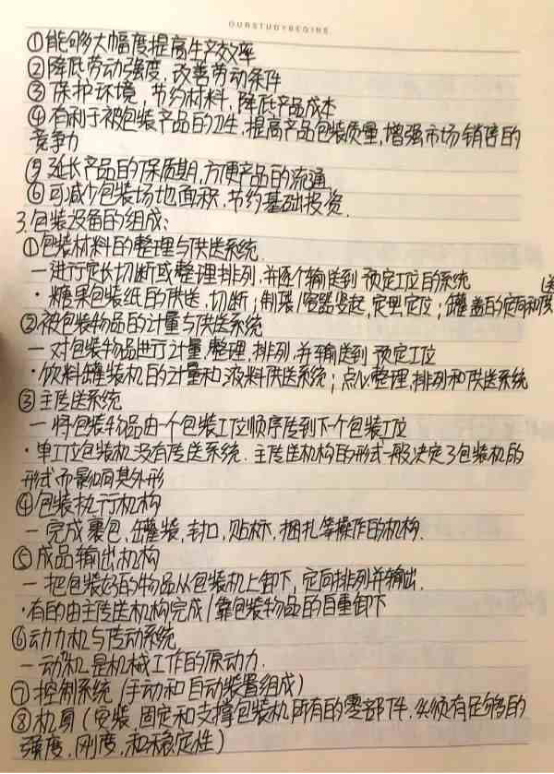 OURSTUDYBEGINS
①能够大幅度提高生产效率
②降低劳动强度,改善劳动条件
③保护环境,节约材料,降低产品成本
④有利于被包装产品的卫生,提高产品包装质量,增强市场销售的
竞争力
⑤延长产品的保质期,方便产品的流通
⑥可减少包装场地面积,节约基础投资.
3.包装设备的组成:
①包装材料的整理与供送系统
一进行定长切断或整理排列,并逐个输送到预定工位的系统
·糖果包装纸的供送,切断;制袋/容器竖起,定型定位;罐盖的定向和
②被包装物品的计量与供送系统
一对包装物品进行计量,整理,排列,并输送到预定工位
·饮料罐装机的计量和液料供送系统;点心整理,排列和供送系统
③主传送系统
一将包装物品由一个包装工位顺序传到下一个包装工位
·单工位包装机没有传送系统.主传送机构的形式一般决定了包装机的
形式而影响其外形
④包装执行机构
一完成裹包,罐装,封口,贴标,捆扎等操作的机构.
⑤成品输出机构
一把包装好的物品从包装机上卸下,定向排列并输出.
·有的由主传送机构完成/靠包装物品的自重卸下
⑥动力机与传动系统
一动机是机械工作的原动力.
⑦控制系统(手动和自动装置组成)
⑧机身(安装,固定和支撑包装机所有的零部件,必须有足够的
强度,刚度,和稳定性)